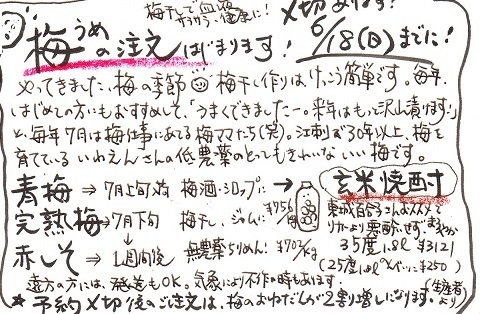 梅干しで血液サラサラ、健康に!
〆切あります!
6/18(日)までに!
梅の注文はじまります!
うめ
やってきました、梅の季節 梅干し作りは、けっこう簡単です。毎年、
はじめての方にもおすすめして、「うまくできましたー。来年はもっと沢山漬けます!」
と、毎年7月は梅仕事にあてる梅ママたち(笑)。江刺で30年以上、梅を
育てている いわえんさんの低農薬のとってもきれいな いい梅です。
青梅 ⇒ 7月上旬頃 梅酒・シロップに →
完熟梅 ⇒ 7月下旬 梅干し、ジャムに
赤しそ → 1週間後 無農薬ちりめん
玄米焼酎
リカーより悪酔いせず、まろやか
35度 1.8L ¥3121
(25度 1.8L ¥250)
(生産者より)
遠方の方には、発送もOK。気象により不作の時もあります。
★予約〆切後のご注文は、梅のおねだんが2割増しになります。